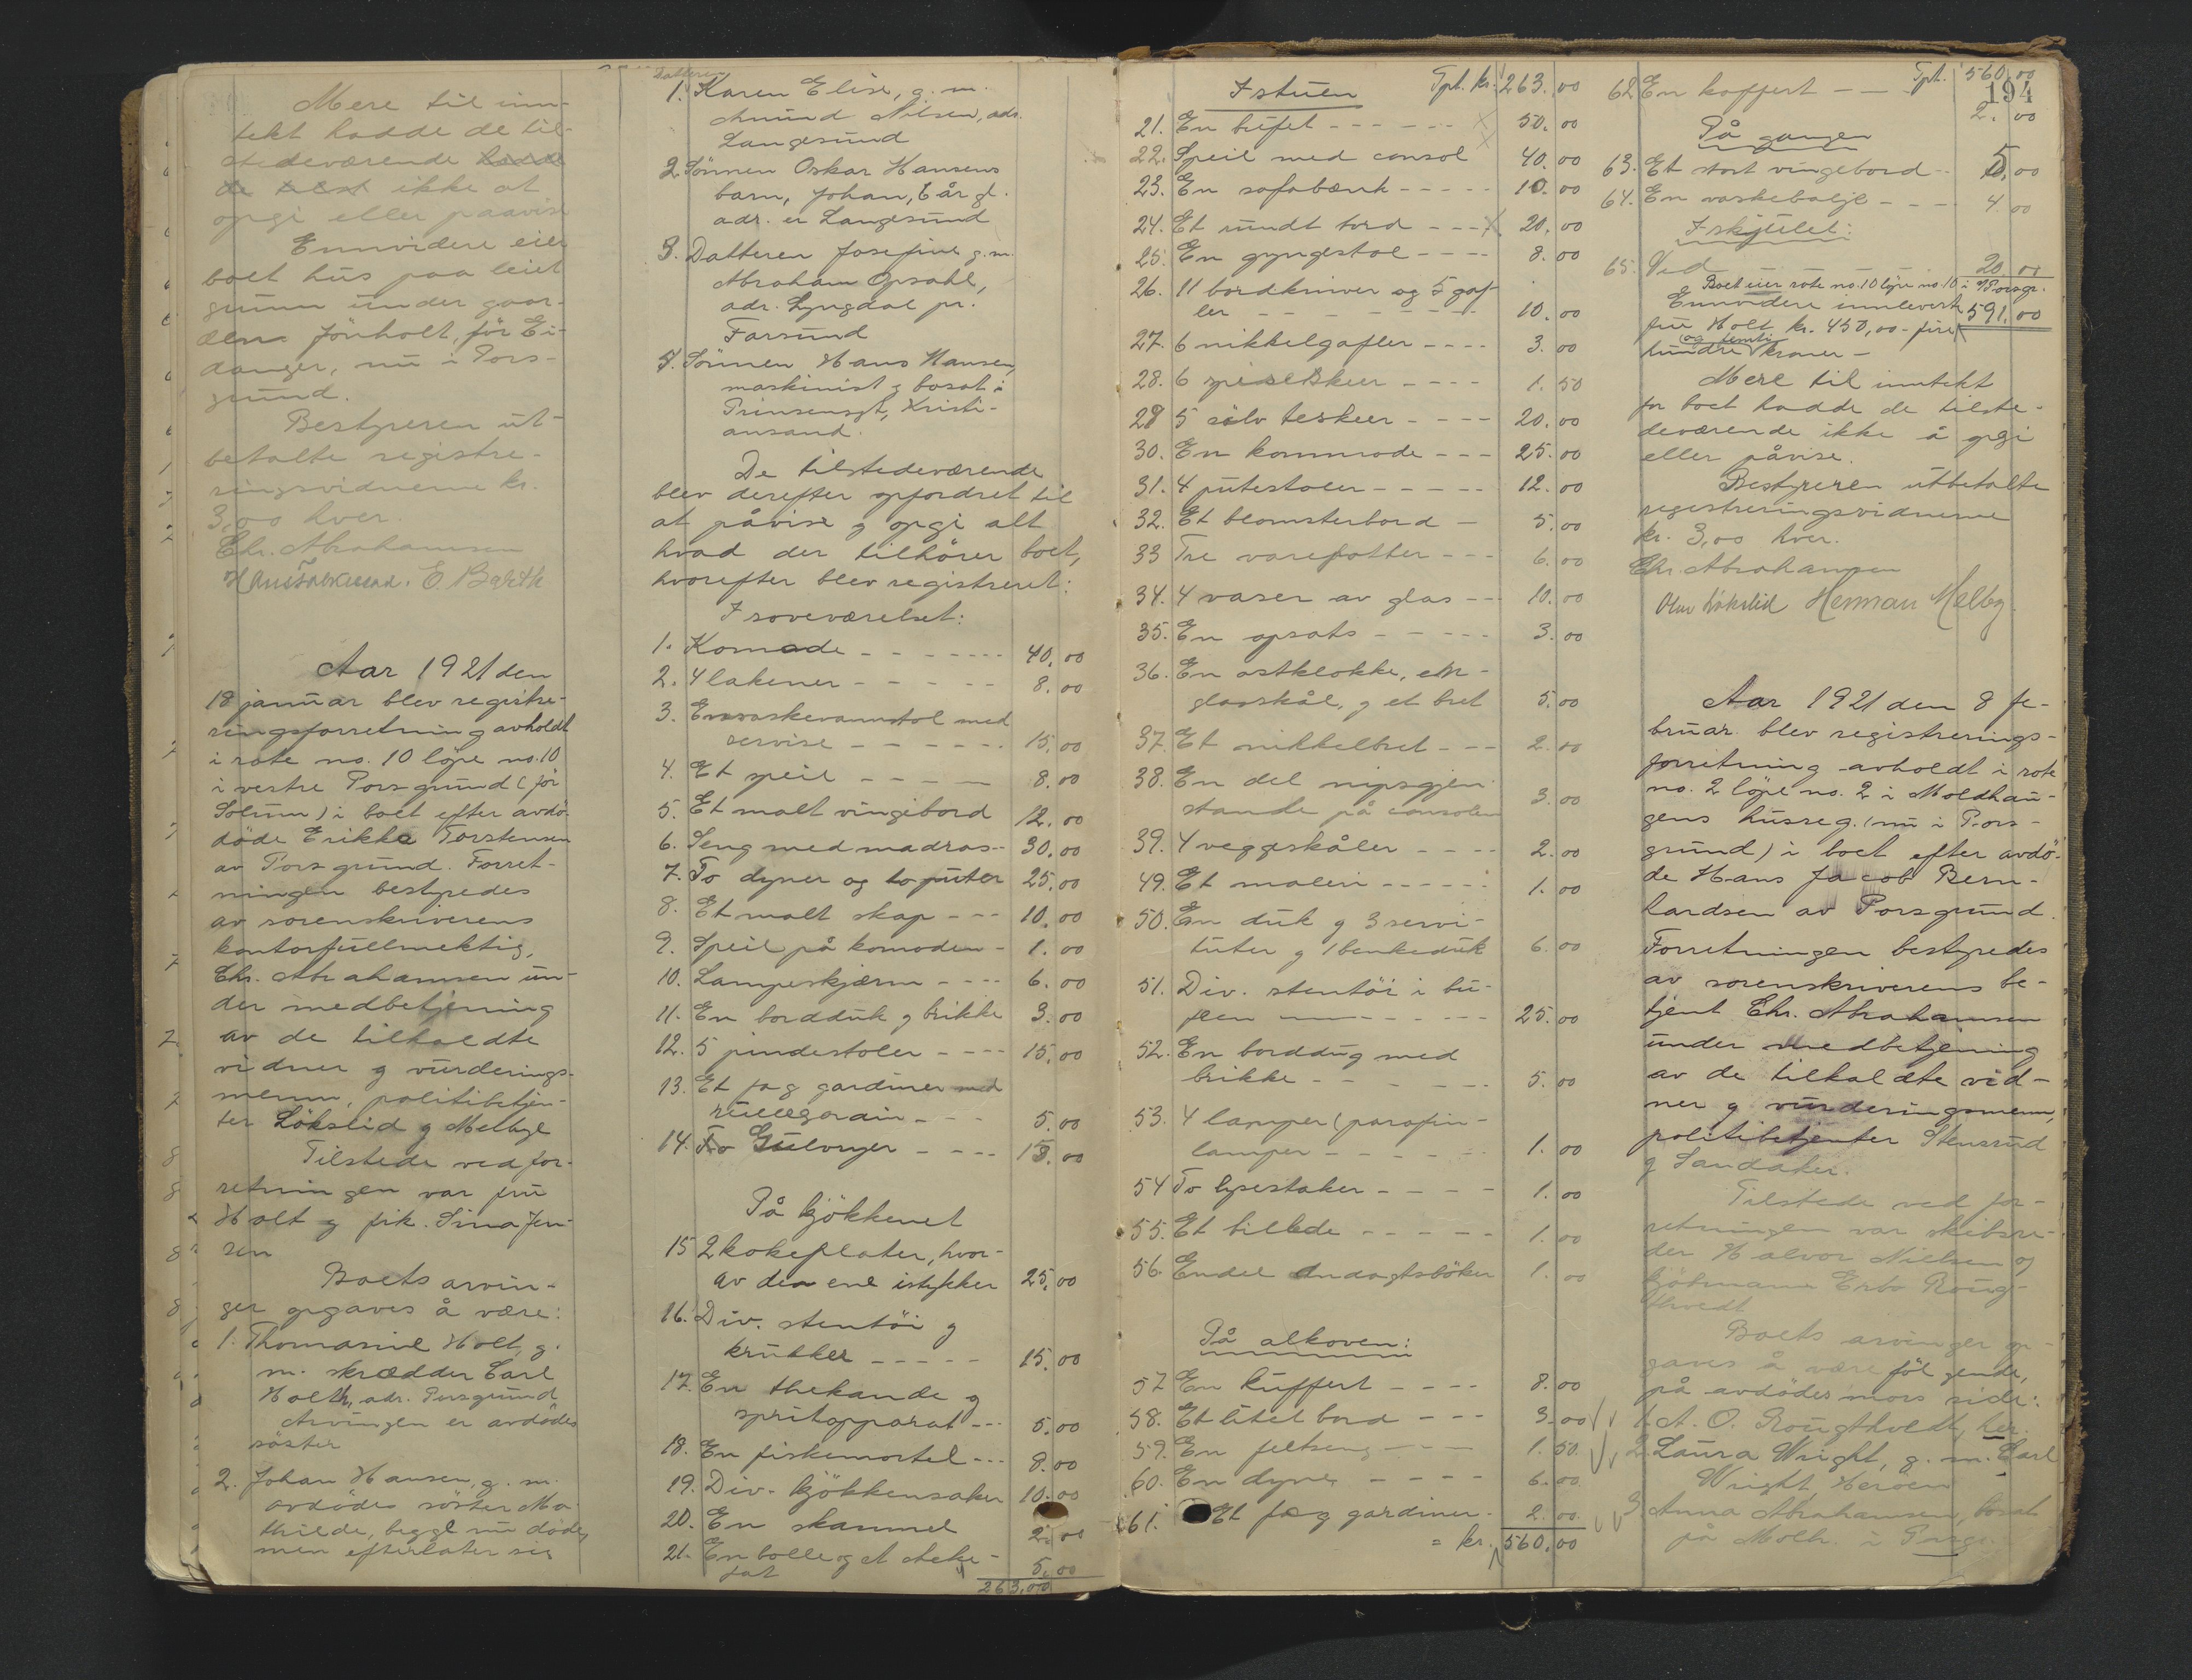 Mere til inn-
tekt hadde de til-
stedeværende hadde
de best ikke at
opgi eller paavise
Ennvidere eier
boet hus paa leiet
grunn under gaar-
den Jönholt, för Ei-
danger, nu i Pors-
grund.
Bestyreren ut-
betalte registre-
ringsvidnerne kr.
3,00 hver.
Chr. Abrahamsen
E. Barth
Aar 1921 den
18 januar blev registre-
ringsforretning avholdt
i rote no. 10 löpe no. 10
i vestre Porsgrund (för
Solum) i boet efter avdö-
döde Erikka Torstensen
av Porsgrund. Forret-
ningen bestyredes
av sorenskriverens
kontorfullmektig,
Chr. Abrahamsen un-
der medbetjening
av de tilkaldte
vidner og vurderings-
menn, politibetjen-
ter Lökslid og Melbye
Tilstede ved for-
retningen var fru
Holt og frk. Sina Jen-
sen
Boets arvin-
ger opgaves å være:
1. Thomasine Holt, g.
m. skrædder Carl
Holth, adr. Porsgrund
Arvingen er avdödes
söster
2. Johan Hansen, g. m.
avdödes söster Ma-
thilde, begge nu döde,
men efterlater sig
Datteren
1. Karen Elise, g. m.
Amund Nilsen, adr.
Langesund
2. Sönnen Oskar Hansens
barn, Johan, 6 år gl.
adr. er Langesund
3. Datteren Josefine g. m.
Abraham Opsahl,
adr. Lyngdal pr.
Farsund
4. Sönnen Hans Hansen,
maskinist og bosat i
Prinsensgt, Kristi-
ansand.
De tilstedeværende
blev derefter opfordret til
at påvise og opgi alt
hvad der tilhörer boet,
hvorefter blev registreret:
I soveværelset:
1. Komode - - - 40.00
2. 4 lakener - - - 8.00
3. En vaskevannstol med
servise - - - 15.00
4. Et speil - - - 8.00
5. Et malt vingebord 12.00
6. Seng med madras - - 30.00
7. To dyner og to puter 25.00
8. Et malt skap - - - 10.00
9. Speil på komoden - 1.00
10. Lampeskjærm - - - 6.00
11. En bordduk og brikke 3.00
12. 5 pindestoler - - - 15.00
13. Et fag gardiner med
rullegardin - - - 5.00
14. To Gulvryer - - - 15.00
På kjökkenet
15 2 kokeplater, hvor-
av den ene istykker 25.00
16. Div. stentöi og
krukker - - - 15.00
17. En thekande og
spritapparat - - - 5.00
18. En fiskemortel - - - 8.00
19. Div. kjökkensaker 10.00
20. En skammel 2.00
21. En bolle og et steke-
fat 5.00
263,00
I stuen Tpt. kr. 263.00
21. En bufet - - - 50.00
22. Speil med consol 40.00
23. En sofabænk - - - 10.00
24. Et rundt bord - - - 20.00
25. En gyngestol - - - 8.00
26. 11 bordkniver og 5 gaf-
ler - - - 10.00
27. 6 nikkelgafler - - - 3.00
28. 6 spiseskeer - - - 1.50
29 5 sölv teskeer - - - 20.00
30. En kommode - - - 25.00
31. 4 putestoler - - - 12.00
32. Et blomsterbord - 5.00
33 Tre varepotter - - - 6.00
34. 4 vaser av glas - - 10.00
35. En opsats - - - 3.00
36. En ostklokke, en -
glasskål, og et bret 5.00
37. Et nikkelbret - - - 2.00
38. En del nipsgjen-
stande på consolen 3.00
39. 4 veggskåler - - - 2.00
49. Et maleri - - - 1.00
50. En duk og 3 servi-
tuter og 1 benkeduk 6.00
51. Div. stentöi i bu-
feen - - - 25.00
52. En borddug med
brikke - - - 5.00
53. 4 lamper (parafin-
lamper - - - 1.00
54 To lysestaker - - - 1.00
55. Et billede - - - 1.00
56. Endel Andagtsböker 1.00
På alkoven:
57 En kuffert - - - 8.00
58. Et litet bord - - - 3.00
59. En feltseng - - - 1.50
60. En dyne - - - 6.00
61. Et fag gardiner - 2.00
= kr. 560.00
Tpt. 560.00
194
62 En koffert - - 2.00
På gangen
63. Et stort vingebord - - 5.00
64. En vaskebalje - - - 4.00
I skjulet:
65. Ved 20.00
Boet eier rote no. 10 löpe no. 10 i V Porsgr.
Ennvidere innleverte 591.00
fru Holt kr. 450,00 - fire
og femti
hundre kroner -
Mere til inntekt
for boet hadde de tilste-
deværende ikke å opgi
eller påvise.
Bestyreren utbetalte
registreringsvidnerne
kr. 3,00 hver.
Chr. Abrahamsen
Olav Lökslid Herman Melby
Aar 1921 den 8 fe-
bruar blev registrerings-
forretning avholdt i rote
no. 2 löpe no. 2 i Moldhau-
gens husreg. (nu i Pors-
grund) i boet efter avdö-
de Hans Jacob Bern-
hardsen av Porsgrund.
Forretningen bestyredes
av sorenskriverens be-
tjent Chr. Abrahamsen
under medbetjening
av de tilkaldte vid-
ner og vurderingsmenn,
politibetjenter Stensrud
og Sandaker.
Tilstede ved for-
retningen var skibsre-
der Halvor Nielsen og
kjöbmann Erbo Roug-
thvedt
Boets arvinger op-
gaves å være fölgende,
på avdödes mors side:
1. A. O. Rougtholdt, her.
2. Laura Wright, g. m. Carl
Wright, Heröen
3. Anna Abrahamsen, bosat
på Molh. i Porsgr.